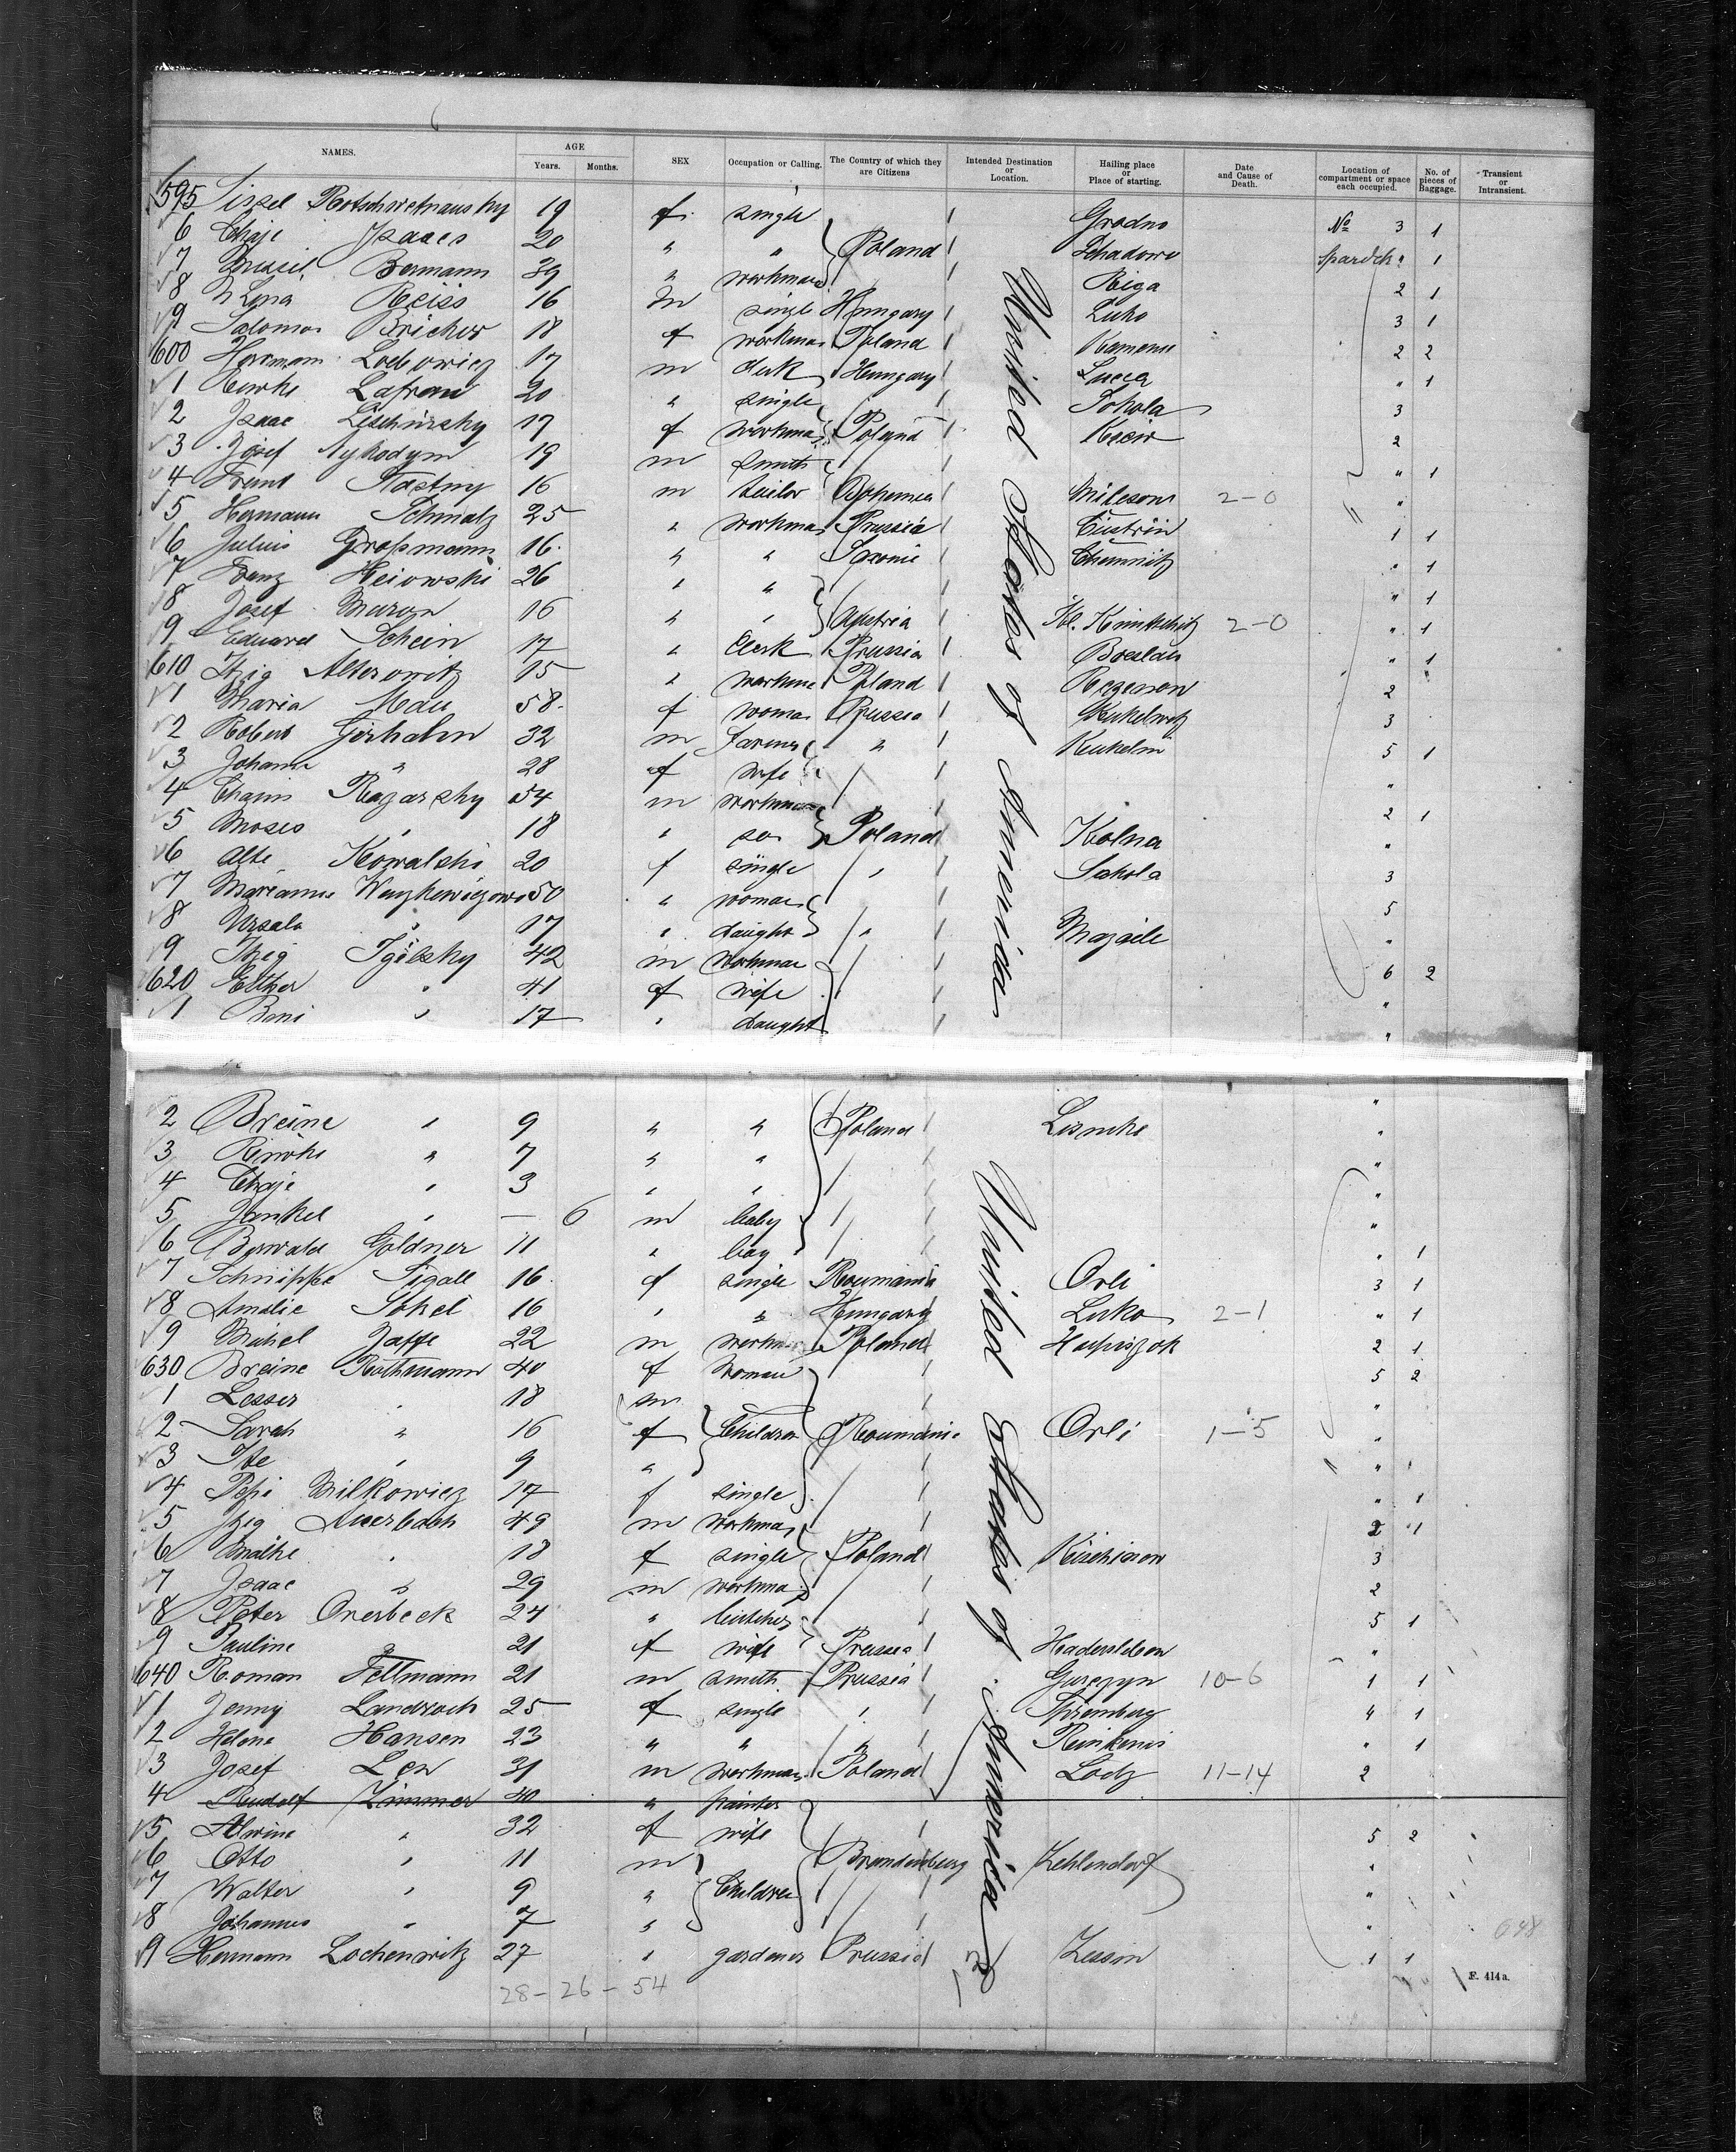 NAMES. AGE Years. Months. SEX Occupation or Calling. The Country of which they are Citizens Intended Destination or Location. Hailing place or Place of starting. Date and Cause of Death. Location of compartment or space each occupied. No. of pieces of Baggage. Transient or Intransient.
595 19 f. single Grodno No 3 1
6 Chaje Isaacs 20 " " Poland 1
7 Bermann 39 " workman Riga " 1
8 Lina Reiss 16 m single Hungary Luko 2 1
9 Salomon Bricker 18 f workman Poland 3 1
600 Hermann 17 m clerk Hungary Lucca 2 2
1 Rewke Lafrau 20 " single Sokola " 1
2 Isaac Leschinsky 17 f workman Poland 3
3 Josef Nykodym 19 m smith 2
4 Frant Stastny 16 m tailor Bohemia Milesom 2-0 " 1
5 Hermann Schmalz 25 " workman Prussia Cüstrin "
6 Julius Großmann 16 " " Saxonie Chemnitz 1 1
7 Franz 26 " " " 1
8 Josef Maron 16 " " Austria Kl. 2-0 " 1
9 Eduard Schein 17 " Clerk Prussia Breslau " 1
610 Itzig Alterowitz 15 " workman Poland " 1
1 Maria Mau 58 f woman Prussia 2
2 Robert 32 m farmer " 3
3 Johanna " 28 f wife 5 1
4 Chaim Rogarsky 54 m workman "
5 Moses " 18 " son Poland Kolna 2 1
6 Alte Kowalski 20 f single " Sokola "
7 Marianne 50 " woman 3
8 Ursula " 17 " daught " 5
9 Itzig 42 m workman "
620 Esther " 41 f wife 6 2
1 Beni " 17 " daught "
United States of America
2 Breine " 9 " " Poland "
3 Riwke " 7 " " "
4 Chaje " 3 " " "
5 Jankel " — 6 m baby "
6 Goldner 11 " boy "
7 Schnippke Sigall 16 f single Roumania Orli " 1
8 Amalie Sokel 16 " " Hungary Luko 2-1 3 1
9 Michel Jaffe 22 m workman Poland " 1
630 Breine Rothmann 40 f woman 2 1
1 Lesser " 18 m 5 2
2 Sarah " 16 f Children Roumanie Orli 1-5 "
3 Ite " 9 " "
4 Pepi Milkowicz 17 f single "
5 Itzig Auerbach 49 m workman " 1
6 Malke " 18 f single Poland Kischinow 2 1
7 Isaac " 29 m workman 3
8 Peter Overbeck 24 " butcher 2
9 Pauline " 21 f wife Prussia Hadersleben 5 1
640 Roman Fellmann 21 m smith Prussia 10-6 "
1 Jenny Landroch 25 f single " Spremberg 1 1
2 Helene Hansen 23 " " " 4 1
3 Josef Lew 31 m workman Poland Lodz 11-14 " 1
4 Rudolf Zimmer 40 " painter 2
5 Alwine " 32 f wife
6 Otto " 11 m Brandenburg Zehlendorf 5 2
7 Walter " 9 " Children "
8 Johannes " 7 " "
9 Hermann Lochenwitz 27 " gardener Prussia Zessin 1 1
United States of America
28-26-54
648
F. 414a.